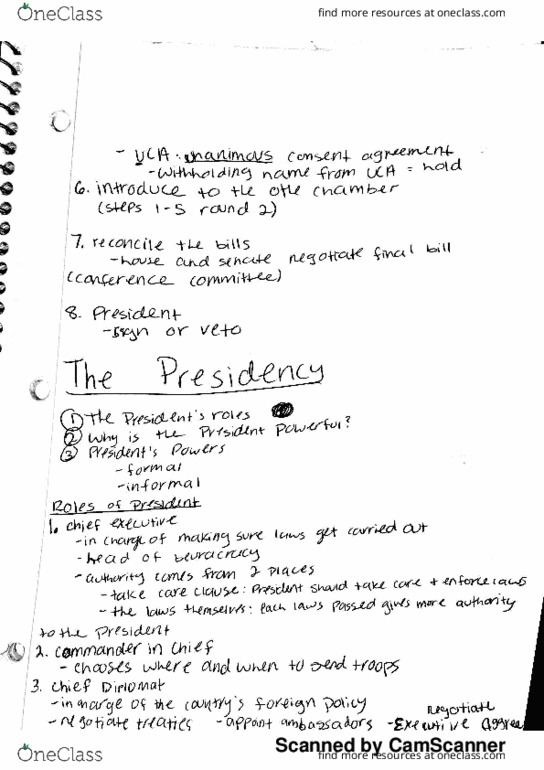 OneClass
find more resources at oneclass.com
- UCA: unanimous consent agreement
- withholding name from UCA = hold
6. introduce to the othe chamber
(steps 1-5 round 2)
7. reconcile the bills
- house and senate negotiate final bill
(conference committee)
8. President
- sign or veto
The Presidency
① The President's roles
② Why is the President Powerful?
③ President's Powers
- formal
- informal
Roles of President
1. chief executive
- in charge of making sure laws get carried out
- head of beuracracy
- authority comes from 2 places
- take care clause: President should take care + enforce laws
- the laws themselves: each laws passed gives more authority
to the President
2. commander in Chief
- chooses where and when to send troops
3. Chief Diplomat
- in charge of the country's foreign policy
- negotiate treaties - appoint ambassadors - negotiate Executive Agree
Scanned by CamScanner
OneClass
find more resources at oneclass.com